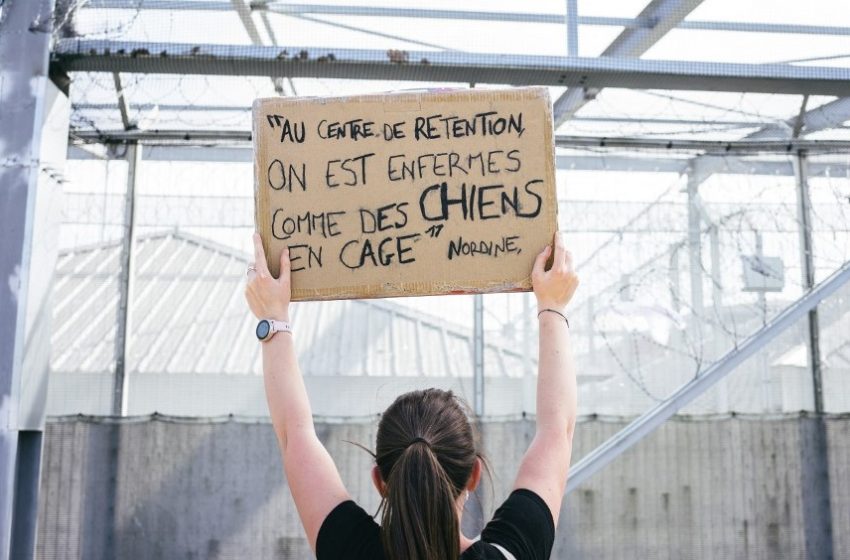 "AU CENTRE DE RETENTION,
ON EST ENFERMES
COMME DES CHIENS
EN CAGE" NORDINE,